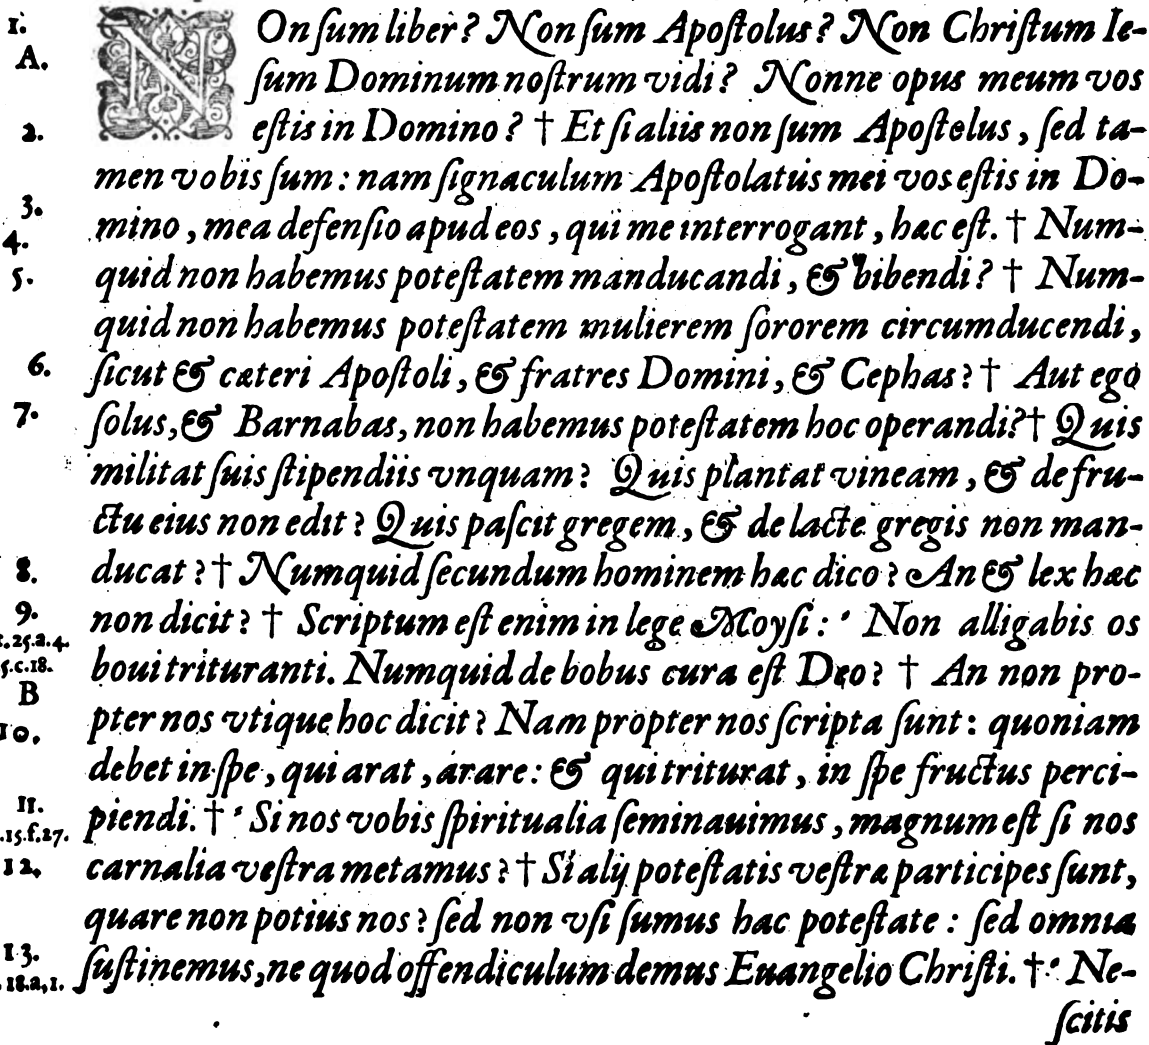 1. NOn ſum liber? Non ſum Apoſtolus? Non Chriſtum Ie-
A. ſum Dominum noſtrum vidi? Nonne opus meum vos
2. eſtis in Domino? † Et ſi aliis non ſum Apoſtolus, ſed ta-
men vobis ſum: nam ſignaculum Apoſtolatus mei vos eſtis in Do-
3. mino, mea defenſio apud eos, qui me interrogant, hæc eſt. † Num-
4. quid non habemus poteſtatem manducandi, & bibendi? † Num-
5. quid non habemus poteſtatem mulierem ſororem circumducendi,
6. ſicut & cæteri Apoſtoli, & fratres Domini, & Cephas? † Aut ego
7. ſolus, & Barnabas, non habemus poteſtatem hoc operandi? † Quis
militat ſuis ſtipendiis vnquam? Quis plantat vineam, & de fru-
ctu eius non edit? Quis paſcit gregem, & de lacte gregis non man-
8. ducat? † Numquid ſecundum hominem hæc dico? An & lex hæc
9. non dicit? † Scriptum eſt enim in lege Moyſi: ' Non alligabis os
.25.a.4.
5.c.18. boui trituranti. Numquid de bobus cura eſt Deo? † An non pro-
B
10. pter nos vtique hoc dicit? Nam propter nos ſcripta ſunt: quoniam
debet in ſpe, qui arat, arare: & qui triturat, in ſpe fructus perci-
11. piendi. † ' Si nos vobis ſpiritualia ſeminauimus, magnum eſt ſi nos
.15.f.27.
12. carnalia veſtra metamus? † Si alij poteſtatis veſtræ participes ſunt,
quare non potius nos? ſed non vſi ſumus hac poteſtate: ſed omnia
13. ſuſtinemus, ne quod offendiculum demus Euangelio Chriſti. † ' Ne-
.18.a,1.
ſcitis